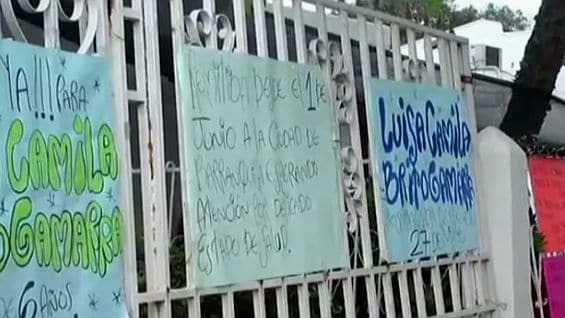 YA!!! PARA
CAMILA
GAMARRA
6 AÑOS
DESDE EL 1 DE
JUNIO A LA CIUDAD DE
BARRANQUILLA ESPERANDO
ATENCION POR DELICADO
ESTADO DE SALUD.
LUISA CAMILA
BRITO GAMARRA
27 DE